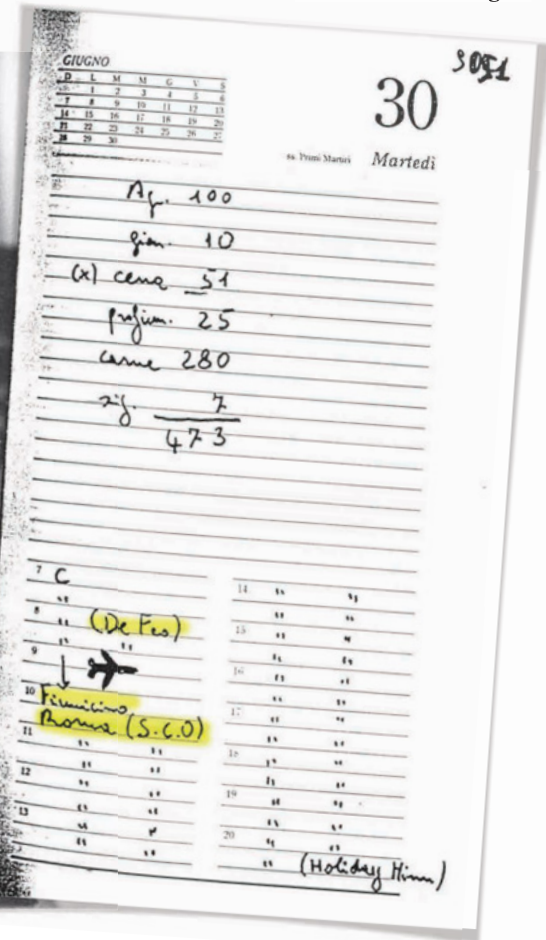 30G1
GIUGNO
D L M M G V S
1 2 3 4 5 6
7 8 9 10 11 12 13
14 15 16 17 18 19 20
21 22 23 24 25 26 27
28 29 30
30
ss. Primi Martiri Martedì
Ap. 100
gion. 10
(x) cena 51
profum. 25
carne 280
sig. 7
473
7 C
" 
8 " (De Feo)
" "
9
10 Fiumicino
Roma (S.C.O)
11 " "
" "
12 " "
" "
13 " "
" "
14 " "
" "
15 " "
" "
16 " "
" "
17 " "
" "
18 " "
" "
19 " "
" "
20 " "
" (Holiday Hinn)